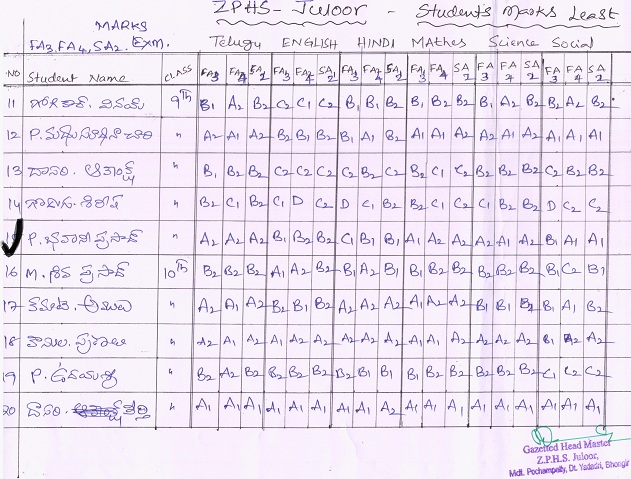 ZPHS- Juloor - Students Marks Least
MARKS
FA3, FA4, SA2. EXM. Telugu ENGLISH HINDI MAthes Science Social
NO Student Name CLASS FA3 FA4 SA2 FA3 FA4 SA2 FA3 FA4 SA2 FA3 FA4 SA2 FA3 FA4 SA2 FA3 FA4 SA2
11 వినయ్ 9th B1 A2 B2 C2 C1 C2 B1 B1 B2 B1 B2 B2 B1 A2 B2 B2 A2 B2
12 P. A2 A1 A2 B2 B1 B2 B1 A1 B2 A2 A1 A2 A2 A1 A2 A1 A1 A1
13 దాసరి. B1 B2 B2 C2 C2 C2 C2 B2 C2 B2 C1 C2 B2 B2 B2 C2 B2 B2
14 B2 C1 B2 C1 D C2 D C1 B2 B2 C1 C2 C1 B2 B2 D C2 C2
15 P. భవాని ప్రసాద్ A2 A2 A2 B1 B2 B2 C1 B1 B1 A1 A2 A2 A2 A2 A2 B1 A1 A1
16 M. శివ ప్రసాద్ 10th B2 B2 B2 A1 A2 B2 B1 A2 B1 B2 B2 B2 B2 B2 B2 B1 C2 B1
17 A2 A1 A2 B2 B1 B2 A2 A2 A2 A1 A2 A2 B1 B1 B2 B1 A1 B2
18 A2 A1 A2 A2 A2 A2 A2 A1 A2 A1 A1 A2 A2 A2 A2 B1 A2 A2
19 P. B2 A2 B2 B2 B2 B2 B2 B1 B1 B1 B2 B2 B2 B2 B2 C1 C2 C2
20 దాసరి. A1 A1 A1 A1 A1 A1 A1 A1 A2 A1 A1 A1 A1 A1 A1 A1 A1 A1
Gazetted Head Master
Z.P.H.S. Juloor,
Mdl. Pochampally, Dt. Yadadri, Bhongir